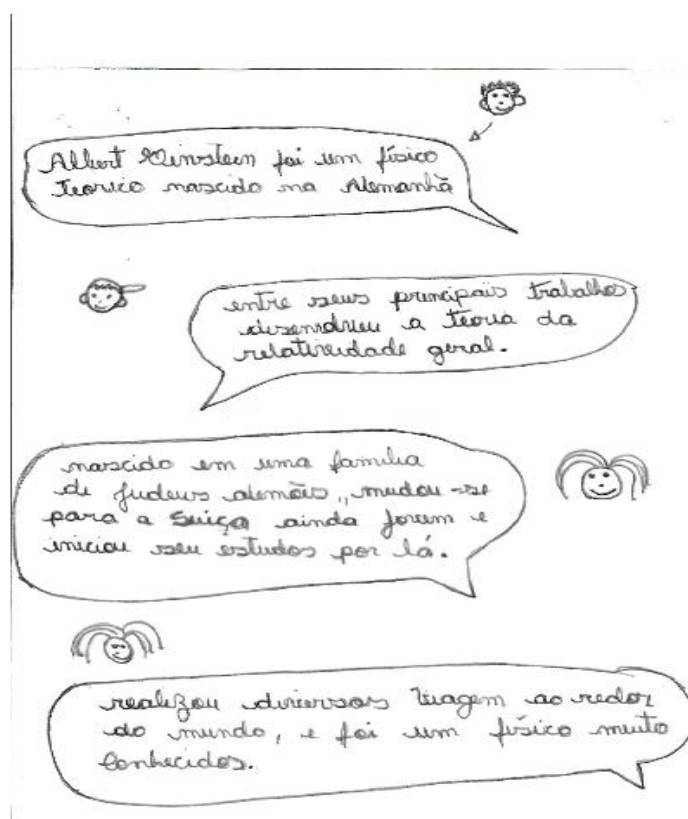 Albert Einstein foi um físico
teorico nascido na Alemanhã
entre seus principais trabalhos
desenvolveu a teoria da
relatividade geral.
nascido em uma familia
de judeus alemães, mudou-se
para a Suiça ainda jovem e
iniciou seu estudos por lá.
realizou diversos viagem ao redor
do mundo, e foi um físico muito
conhecidos.